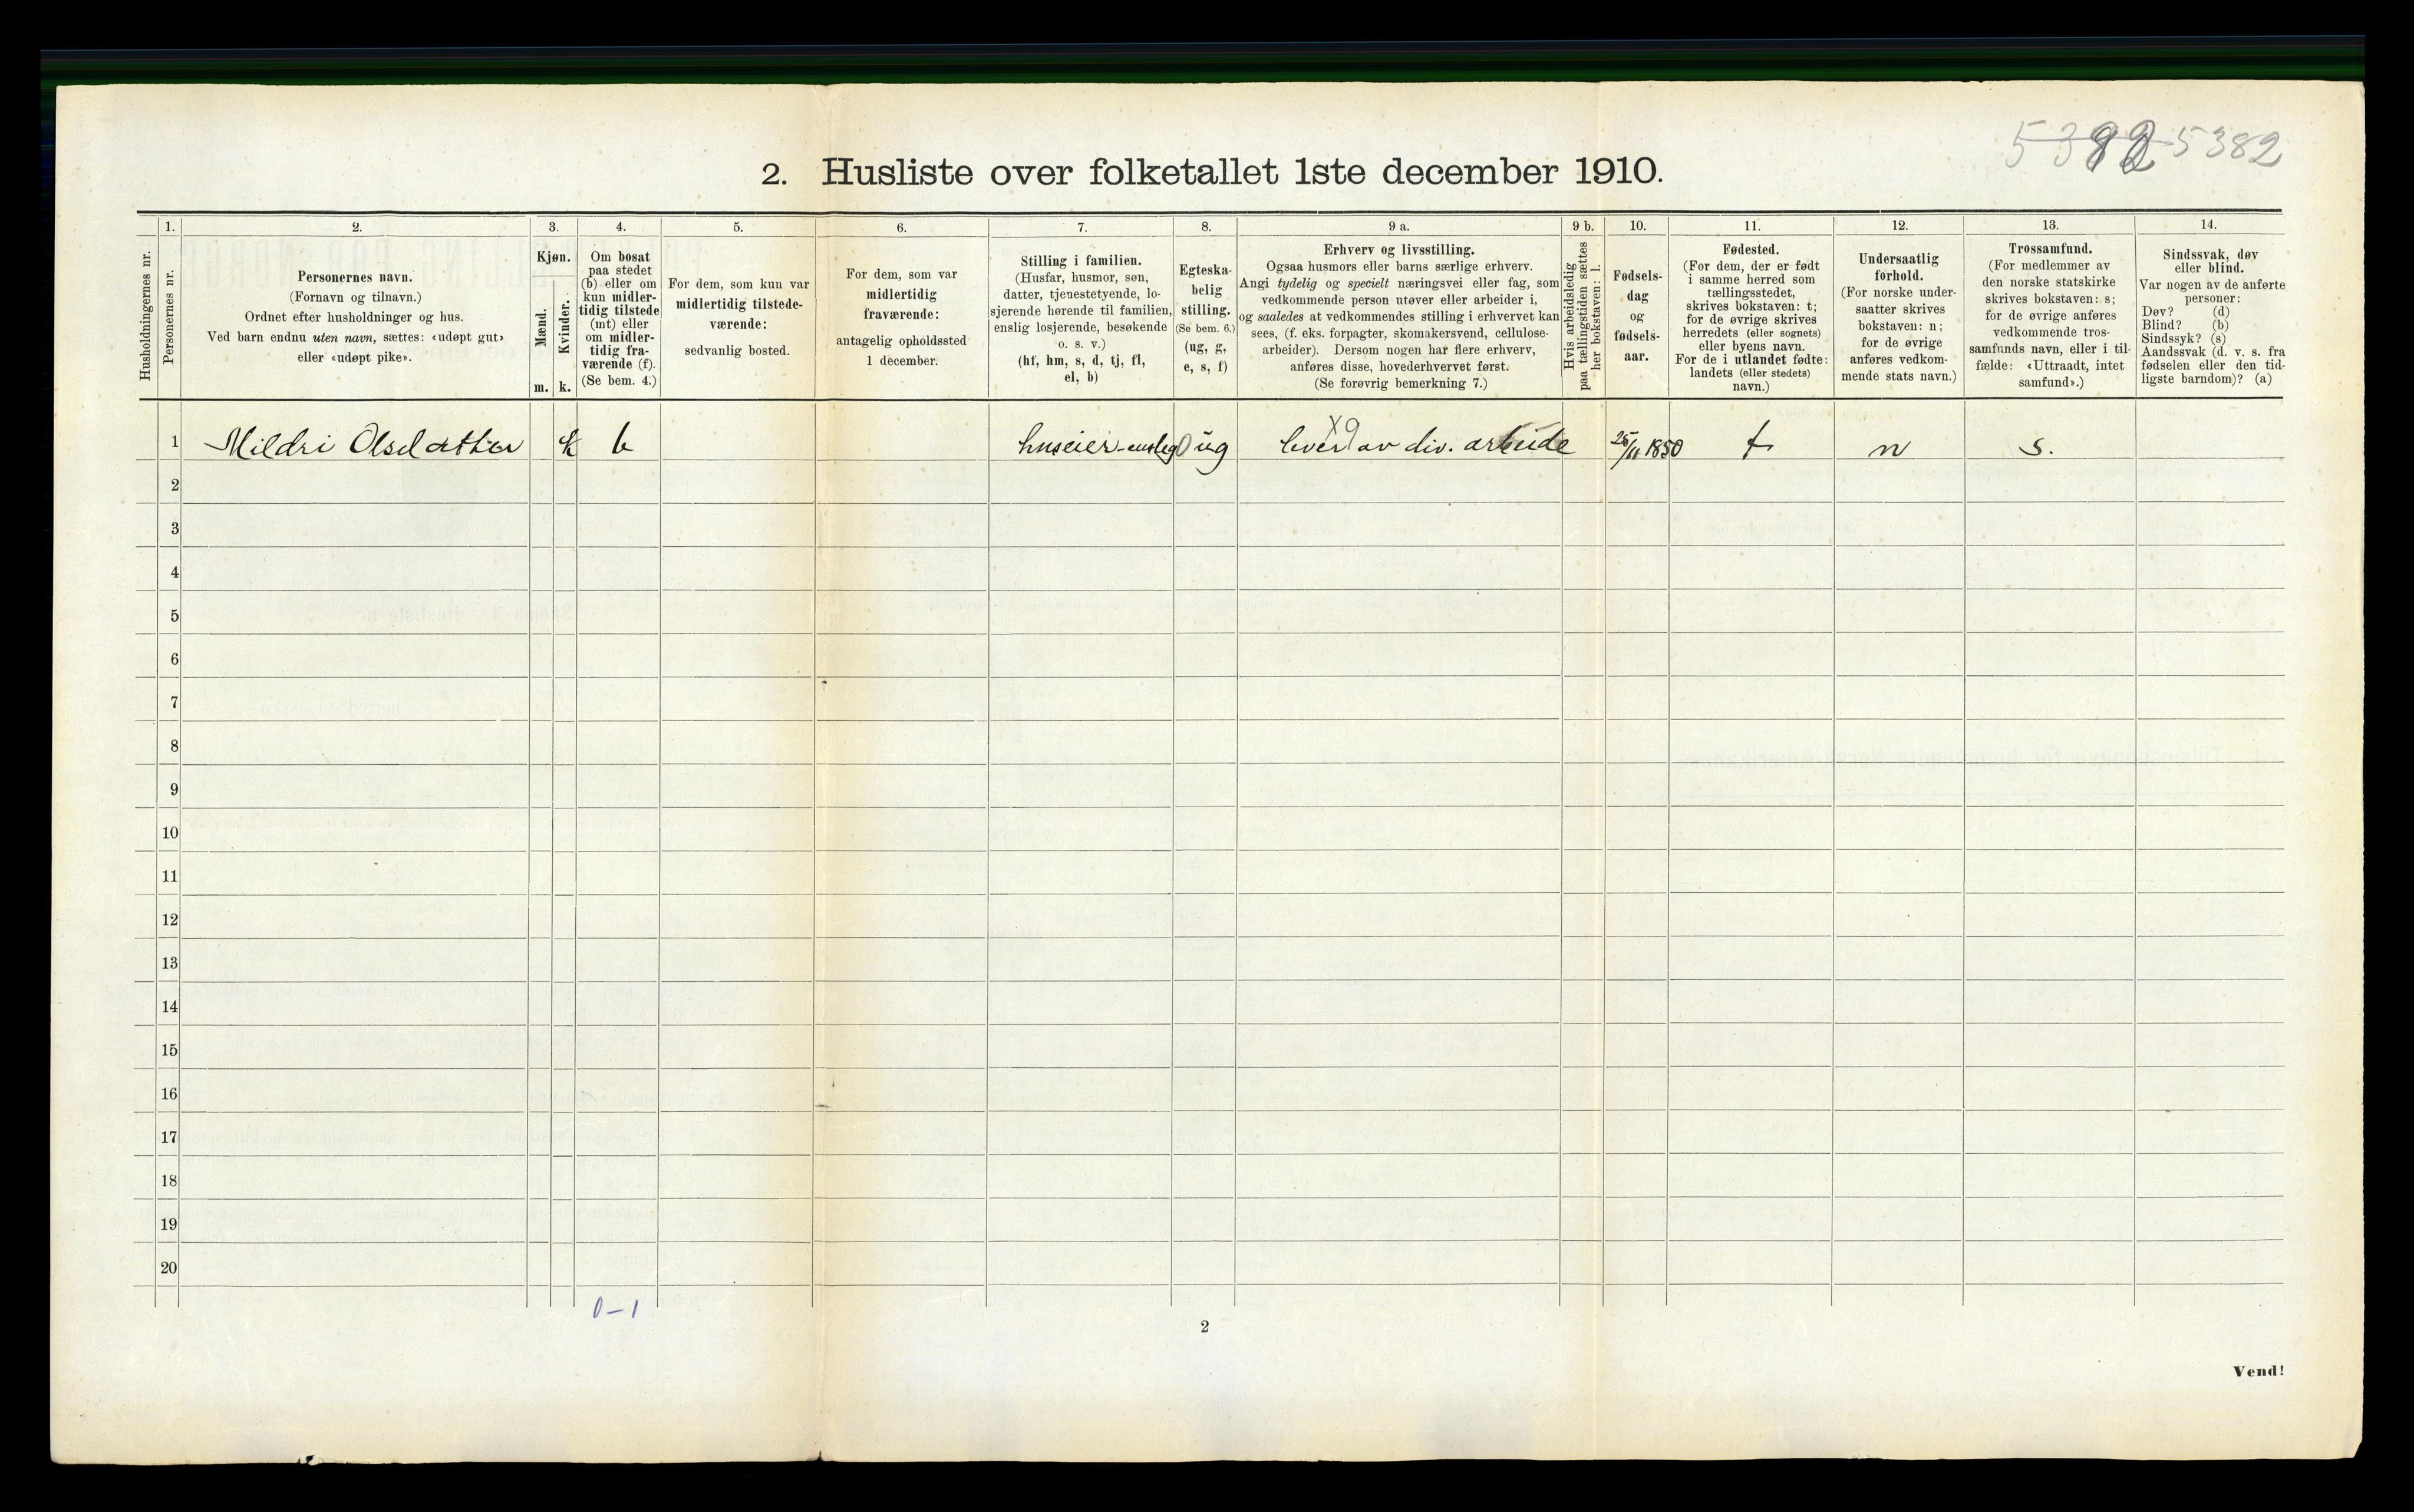 5382 5382
2. Husliste over folketallet 1ste december 1910.
Husholdningernes nr.
1.
Personernes nr.
2.
Personernes navn.
(Fornavn og tilnavn.)
Ordnet efter husholdninger og hus.
Ved barn endnu uten navn, sættes: «udøpt gut»
eller «udøpt pike».
3.
Kjøn.
Mænd.
Kvinder.
m. k.
4.
Om bosat
paa stedet
(b) eller om
kun midler-
tidig tilstede
(mt) eller
om midler-
tidig fra-
værende (f).
(Se bem. 4.)
5.
For dem, som kun var
midlertidig tilstede-
værende:
sedvanlig bosted.
6.
For dem, som var
midlertidig
fraværende:
antagelig opholdssted
1 december.
7.
Stilling i familien.
(Husfar, husmor, søn,
datter, tjenestetyende, lo-
sjerende hørende til familien,
enslig losjerende, besøkende
o. s. v.)
(hf, hm, s, d, tj, fl,
el, b)
8.
Egteska-
belig
stilling.
(Se bem. 6.)
(ug, g,
e, s, f)
9 a.
Erhverv og livsstilling.
Ogsaa husmors eller barns særlige erhverv.
Angi tydelig og specielt næringsvei eller fag, som
vedkommende person utøver eller arbeider i,
og saaledes at vedkommendes stilling i erhvervet kan
sees, (f. eks. forpagter, skomakersvend, cellulose-
arbeider). Dersom nogen har flere erhverv,
anføres disse, hovederhvervet først.
(Se forøvrig bemerkning 7.)
9 b.
Hvis arbeidsledig
paa tællingstiden sættes
her bokstaven: l.
10.
Fødsels-
dag
og
fødsels-
aar.
11.
Fødested.
(For dem, der er født
i samme herred som
tællingsstedet,
skrives bokstaven: t;
for de øvrige skrives
herredets (eller sognets)
eller byens navn.
For de i utlandet fødte:
landets (eller stedets)
navn.)
12.
Undersaatlig
forhold.
(For norske under-
saatter skrives
bokstaven: n;
for de øvrige
anføres vedkom-
mende stats navn.)
13.
Trossamfund.
(For medlemmer av
den norske statskirke
skrives bokstaven: s;
for de øvrige anføres
vedkommende tros-
samfunds navn, eller i til-
fælde: «Uttraadt, intet
samfund».)
14.
Sindssvak, døv
eller blind.
Var nogen av de anførte
personer:
Døv? (d)
Blind? (b)
Sindssyk? (s)
Aandssvak (d. v. s. fra
fødselen eller den tid-
ligste barndom)? (a)
X9
1 Mildri Olsdatter k b huseier-enslig 0 ug lever av div. arbeide 25/11 1850 t n s.
2
3
4
5
6
7
8
9
10
11
12
13
14
15
16
17
18
19
20
0-1
2
Vend!